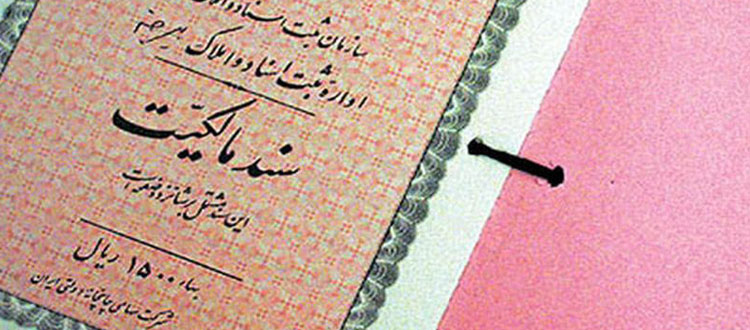 سازمان ثبت اسناد و املاک
اداره ثبت اسناد و املاک بیرجند
سند مالکیت
این سند مشتمل بر شانزده صفحه است
بهاء ۱۵۰۰ ریال
شرکت سهامی چاپخانه دولتی ایران